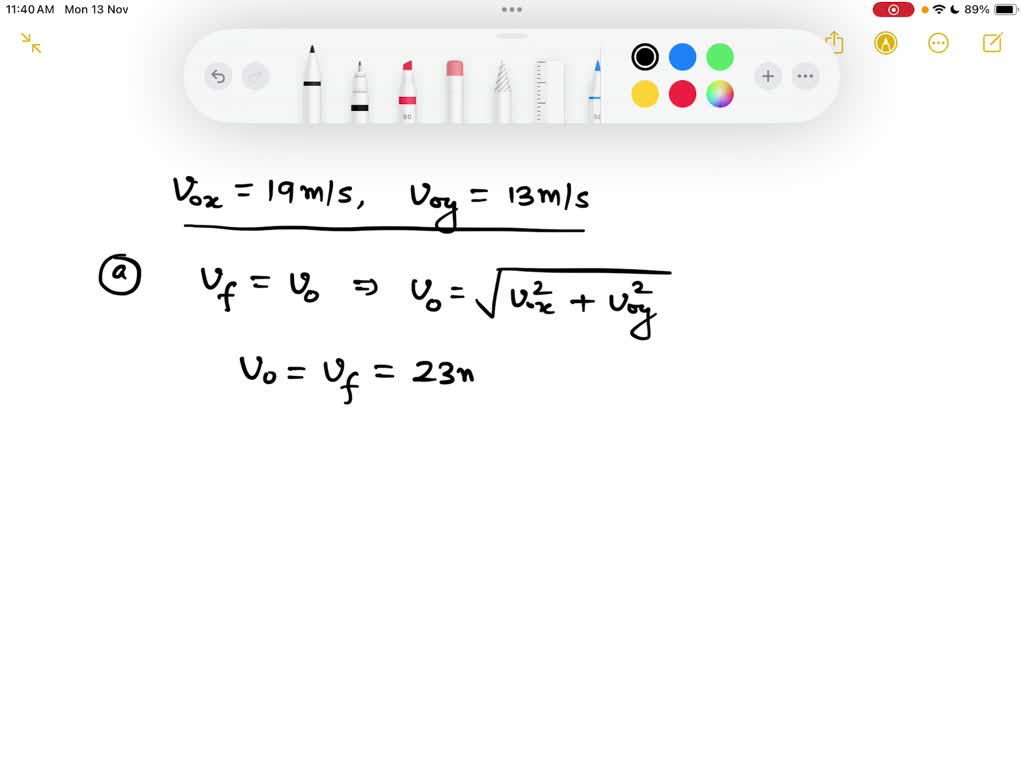 11:40 AM Mon 13 Nov 89%
80 50
V₀ₓ = 19 m/s, V₀y = 13 m/s
ⓐ Vf = V₀ ⇒ V₀ = √(V₀ₓ² + V₀y²)
V₀ = Vf = 23 m